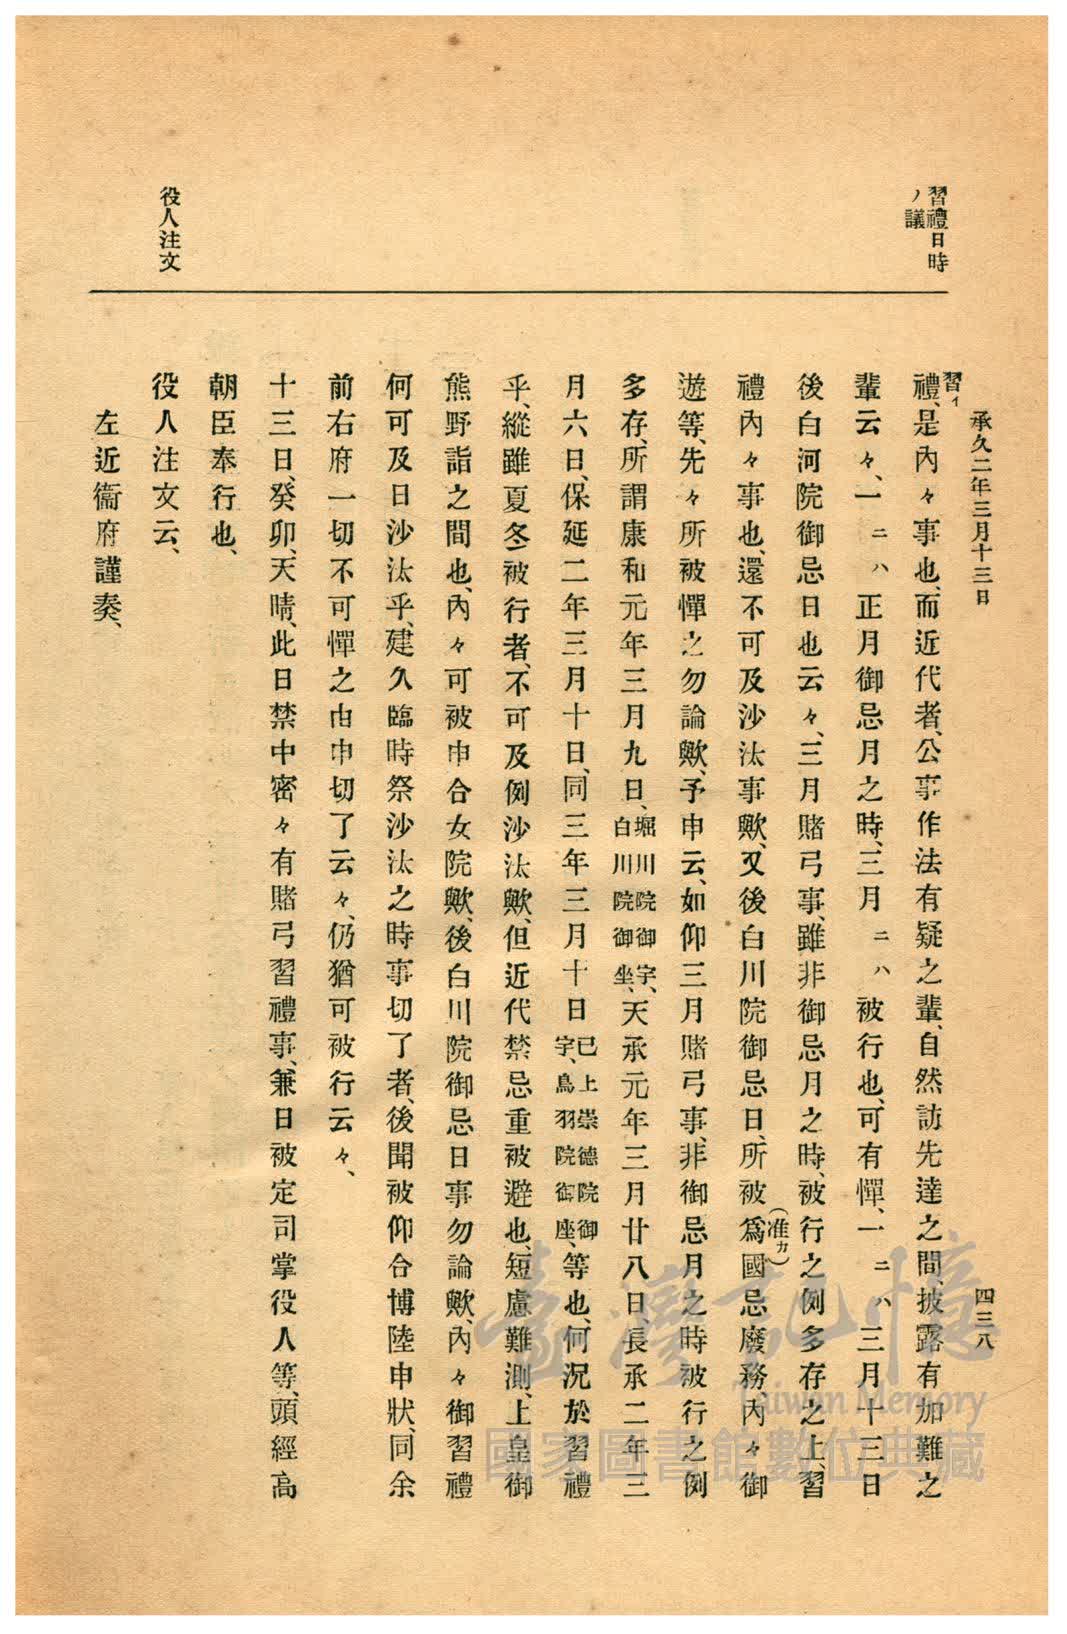 承久二年三月十三日
四三八
習禮日時
ノ議
役人注文
習イ
禮、是內々事也、而近代者、公事作法有疑之輩、自然訪先達之間、披露有加難之
輩云々、一ニハ正月御忌月之時、三月ニハ被行也、可有憚、一ニハ三月十三日
後白河院御忌日也云々、三月賭弓事、雖非御忌月之時、被行之例多存之上、習
禮內々事也、還不可及沙汰事歟、又後白川院御忌日、所被爲國忌廢務、內々御
(准カ)
遊等、先々所被憚之勿論歟、予申云、如仰三月賭弓事、非御忌月之時被行之例
多存、所謂康和元年三月九日、堀川院御宇、白川院御坐、天承元年三月廿八日、長承二年三
月六日、保延二年三月十日、同三年三月十日已上崇德院御宇、鳥羽院御座、等也、何況於習禮
乎、縱雖夏冬被行者、不可及例沙汰歟、但近代禁忌重被避也、短慮難測、上皇御
熊野詣之間也、內々可被申合女院歟、後白川院御忌日事勿論歟、內々御習禮
何可及日沙汰乎、建久臨時祭沙汰之時事切了者、後聞被仰合博陸申狀、同余
前右府一切不可憚之由申切了云々、仍猶可被行云々、
十三日、癸卯、天晴、此日禁中密々有賭弓習禮事、兼日被定司掌役人等、頭經高
朝臣奉行也、
役人注文云、
左近衞府謹奏、
臺灣記憶
Taiwan Memory
國家圖書館數位典藏